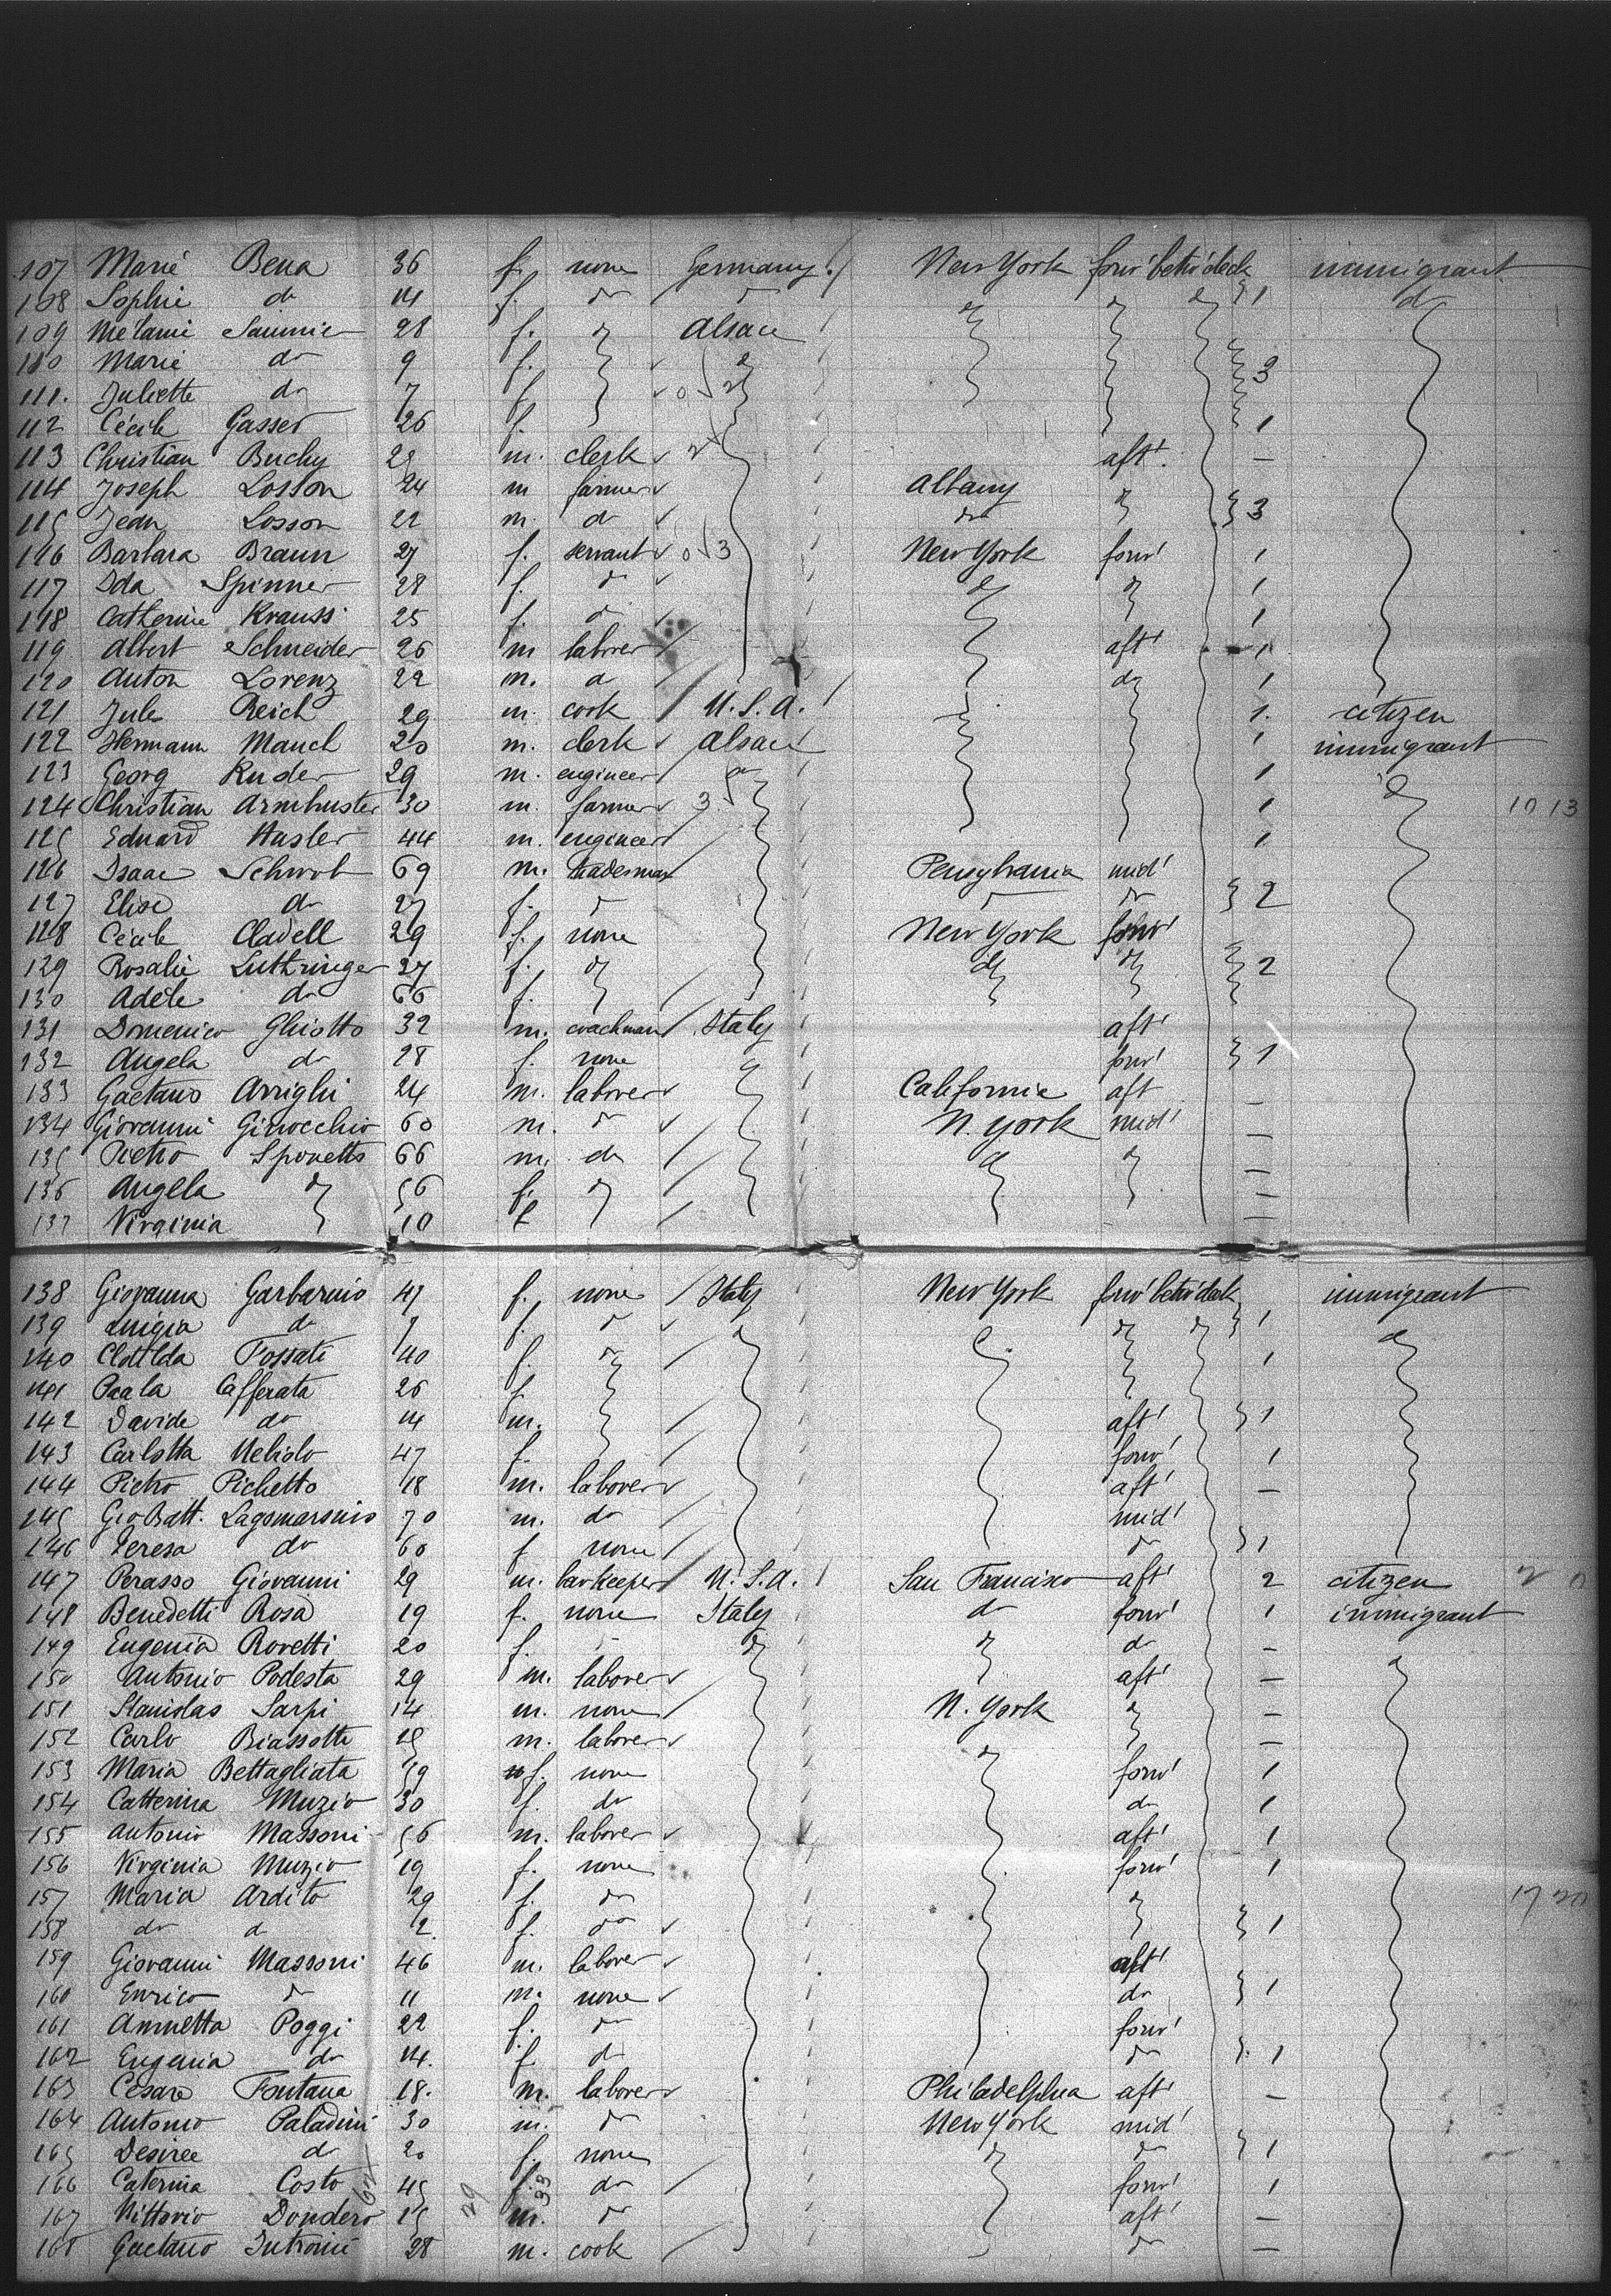 107 Marie Bena 36 f. none Germany. New York forw' betw' deck immigrant
108 Sophie do 14 f. do do do do do 1 do
109 Melanie Saunier 28 f. do Alsace
110 Marie do 9 f. do 3
111. Juliette do 7 f. 0
112 Cécile Gasser 26 f. 1
113 Christian Buchy 22 m. clerk aft'. —
114 Joseph Losson 24 m farmer Albany do
115 Jean Losson 22 m. do do 3
116 Barbara Braun 27 f. servant 0 3 New York forw' 1
117 Ida Spinner 28 f. do do do 1
118 Catherine Krauss 25 f. do 1
119 Albert Schneider 26 m laborer aft' 1
120 Anton Lorenz 22 m. do do 1
121 Jule Reich 29 m. cook U.S.A. 1. citizen
122 Hermann Mauch 20 m. clerk Alsace 1 immigrant
123 Georg Ruder 29 m. engineer do 1 do
124 Christian Armbuster 30 m. farmer 3 1 10 13
125 Eduard Hasler 44 m. engineer 1
126 Isaac Schwob 69 m. tradesman Pensylvania mid'
127 Elise do 27 f. do do do 2
128 Cécile Cladell 29 f. none New York forw'
129 Rosalie Luthringer 27 f. do do do 2
130 Adèle do 66 f.
131 Domenico Ghiotto 32 m. coachman Italy aft'
132 Angela do 28 f. none do forw' 1
133 Gaetano Arrighi 24 m. laborer California aft —
134 Giovanni Ginocchio 60 m. do N. York mid' —
135 Pietro Sponetto 66 m. do do do —
136 Angela do 56 f. do —
137 Virginia 10 f —
138 Giovanna Garbarino 47 f. none Italy New York forw' betw' deck immigrant
139 Luigia do 7 f. do do do do 1 do
140 Clotilda Fossati 40 f. do 1
141 Paola Cafferata 26 f.
142 Davide do 14 m. aft' 1
143 Carlotta Nebido 47 f. forw' 1
144 Pietro Pichetto 18 m. laborer aft' —
145 Gio Batt. Lagomarsino 70 m. do mid'
146 Teresa do 60 f none do 1
147 Perasso Giovanni 29 m. barkeeper U.S.A. San Francisco aft' 2 citizen 2 0
148 Benedetti Rosa 19 f. none Italy do forw' 1 immigrant
149 Eugenia Rovetti 20 f. - do do do —
150 Antonio Podesta 29 m. laborer aft' — do
151 Stanislas Sarpi 14 m. none N. York do —
152 Carlo Biassotti 28 m. laborer —
153 Maria Bettagliata 59 f. none do forw' 1
154 Catterina Muzio 30 f. do do 1
155 Antonio Massoni 56 m. laborer aft' 1
156 Virginia Muzio 19 f. none forw' 1
157 Maria Ardito 29 f. do do 17 20
158 do do 2 f. do 1
159 Giovanni Massoni 46 m. laborer aft'
160 Enrico do 11 m. none do 1
161 Annetta Poggi 22 f. do forw'
162 Eugenia do 14. f do do 1
163 Cesare Fontana 18. m. laborer Philadelphia aft' —
164 Antonio Paladini 30 m. do New York mid'
165 Desiree do 20 f. none do do 1
166 Caterina Costo 45 f. do forw' 1
167 Vittorio Dondero 15 m. do aft' —
168 Gaetano Introini 28 m. cook do —
62 29 33